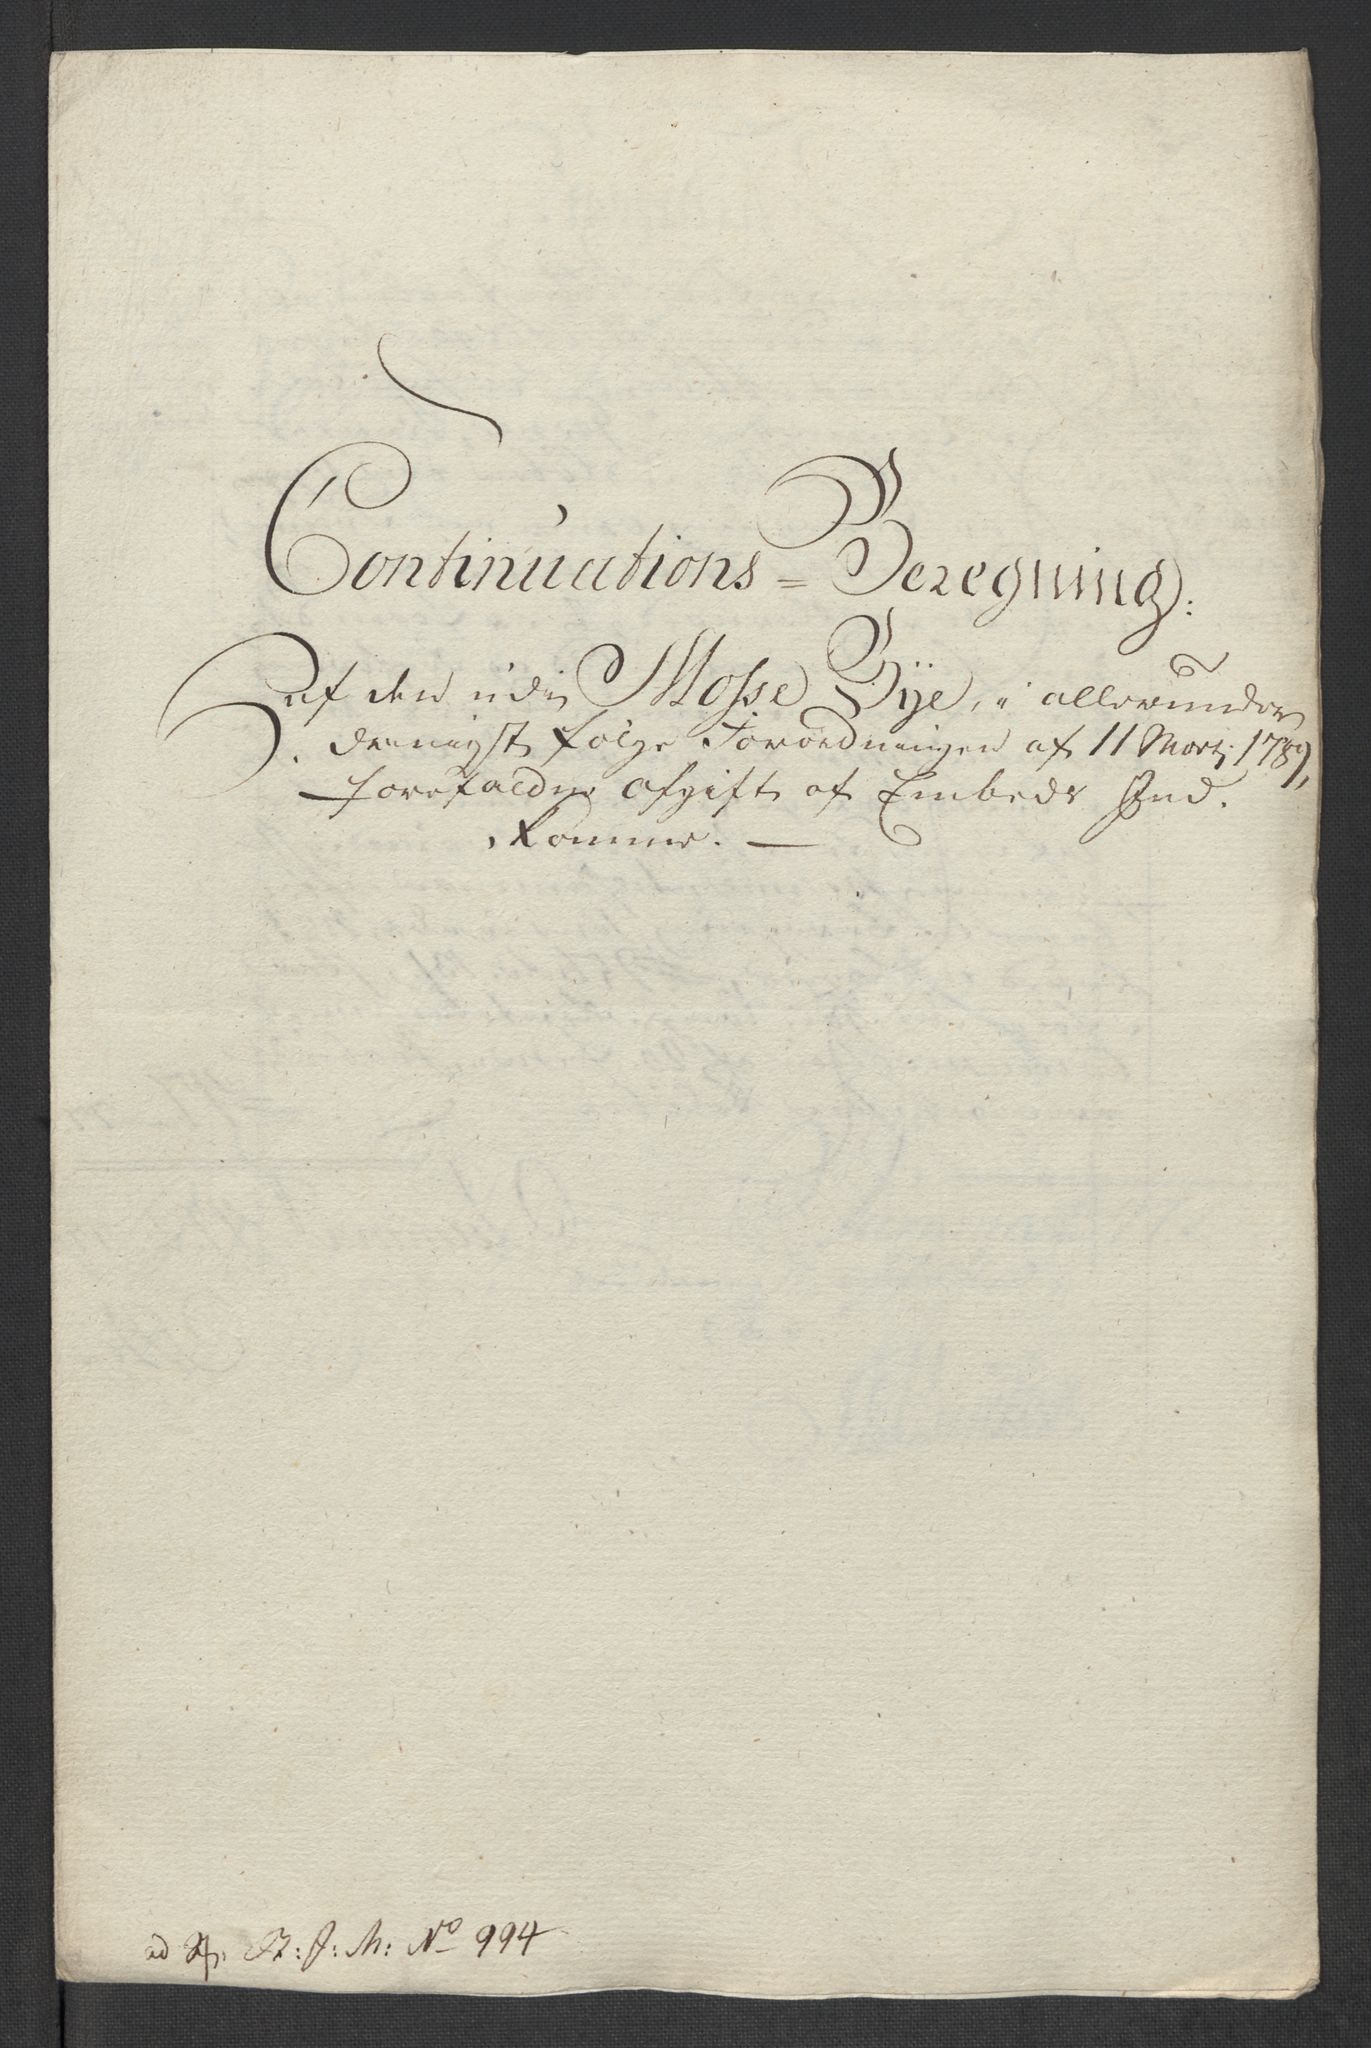 Continuations = Beregning:
af den udi Mosse Bÿe, i allerunder
danigst følge Forordningen af 11 Martj 1789,
forefaldne afgift af Embeds Ind.
komme. —
ad R: J: M: No 994